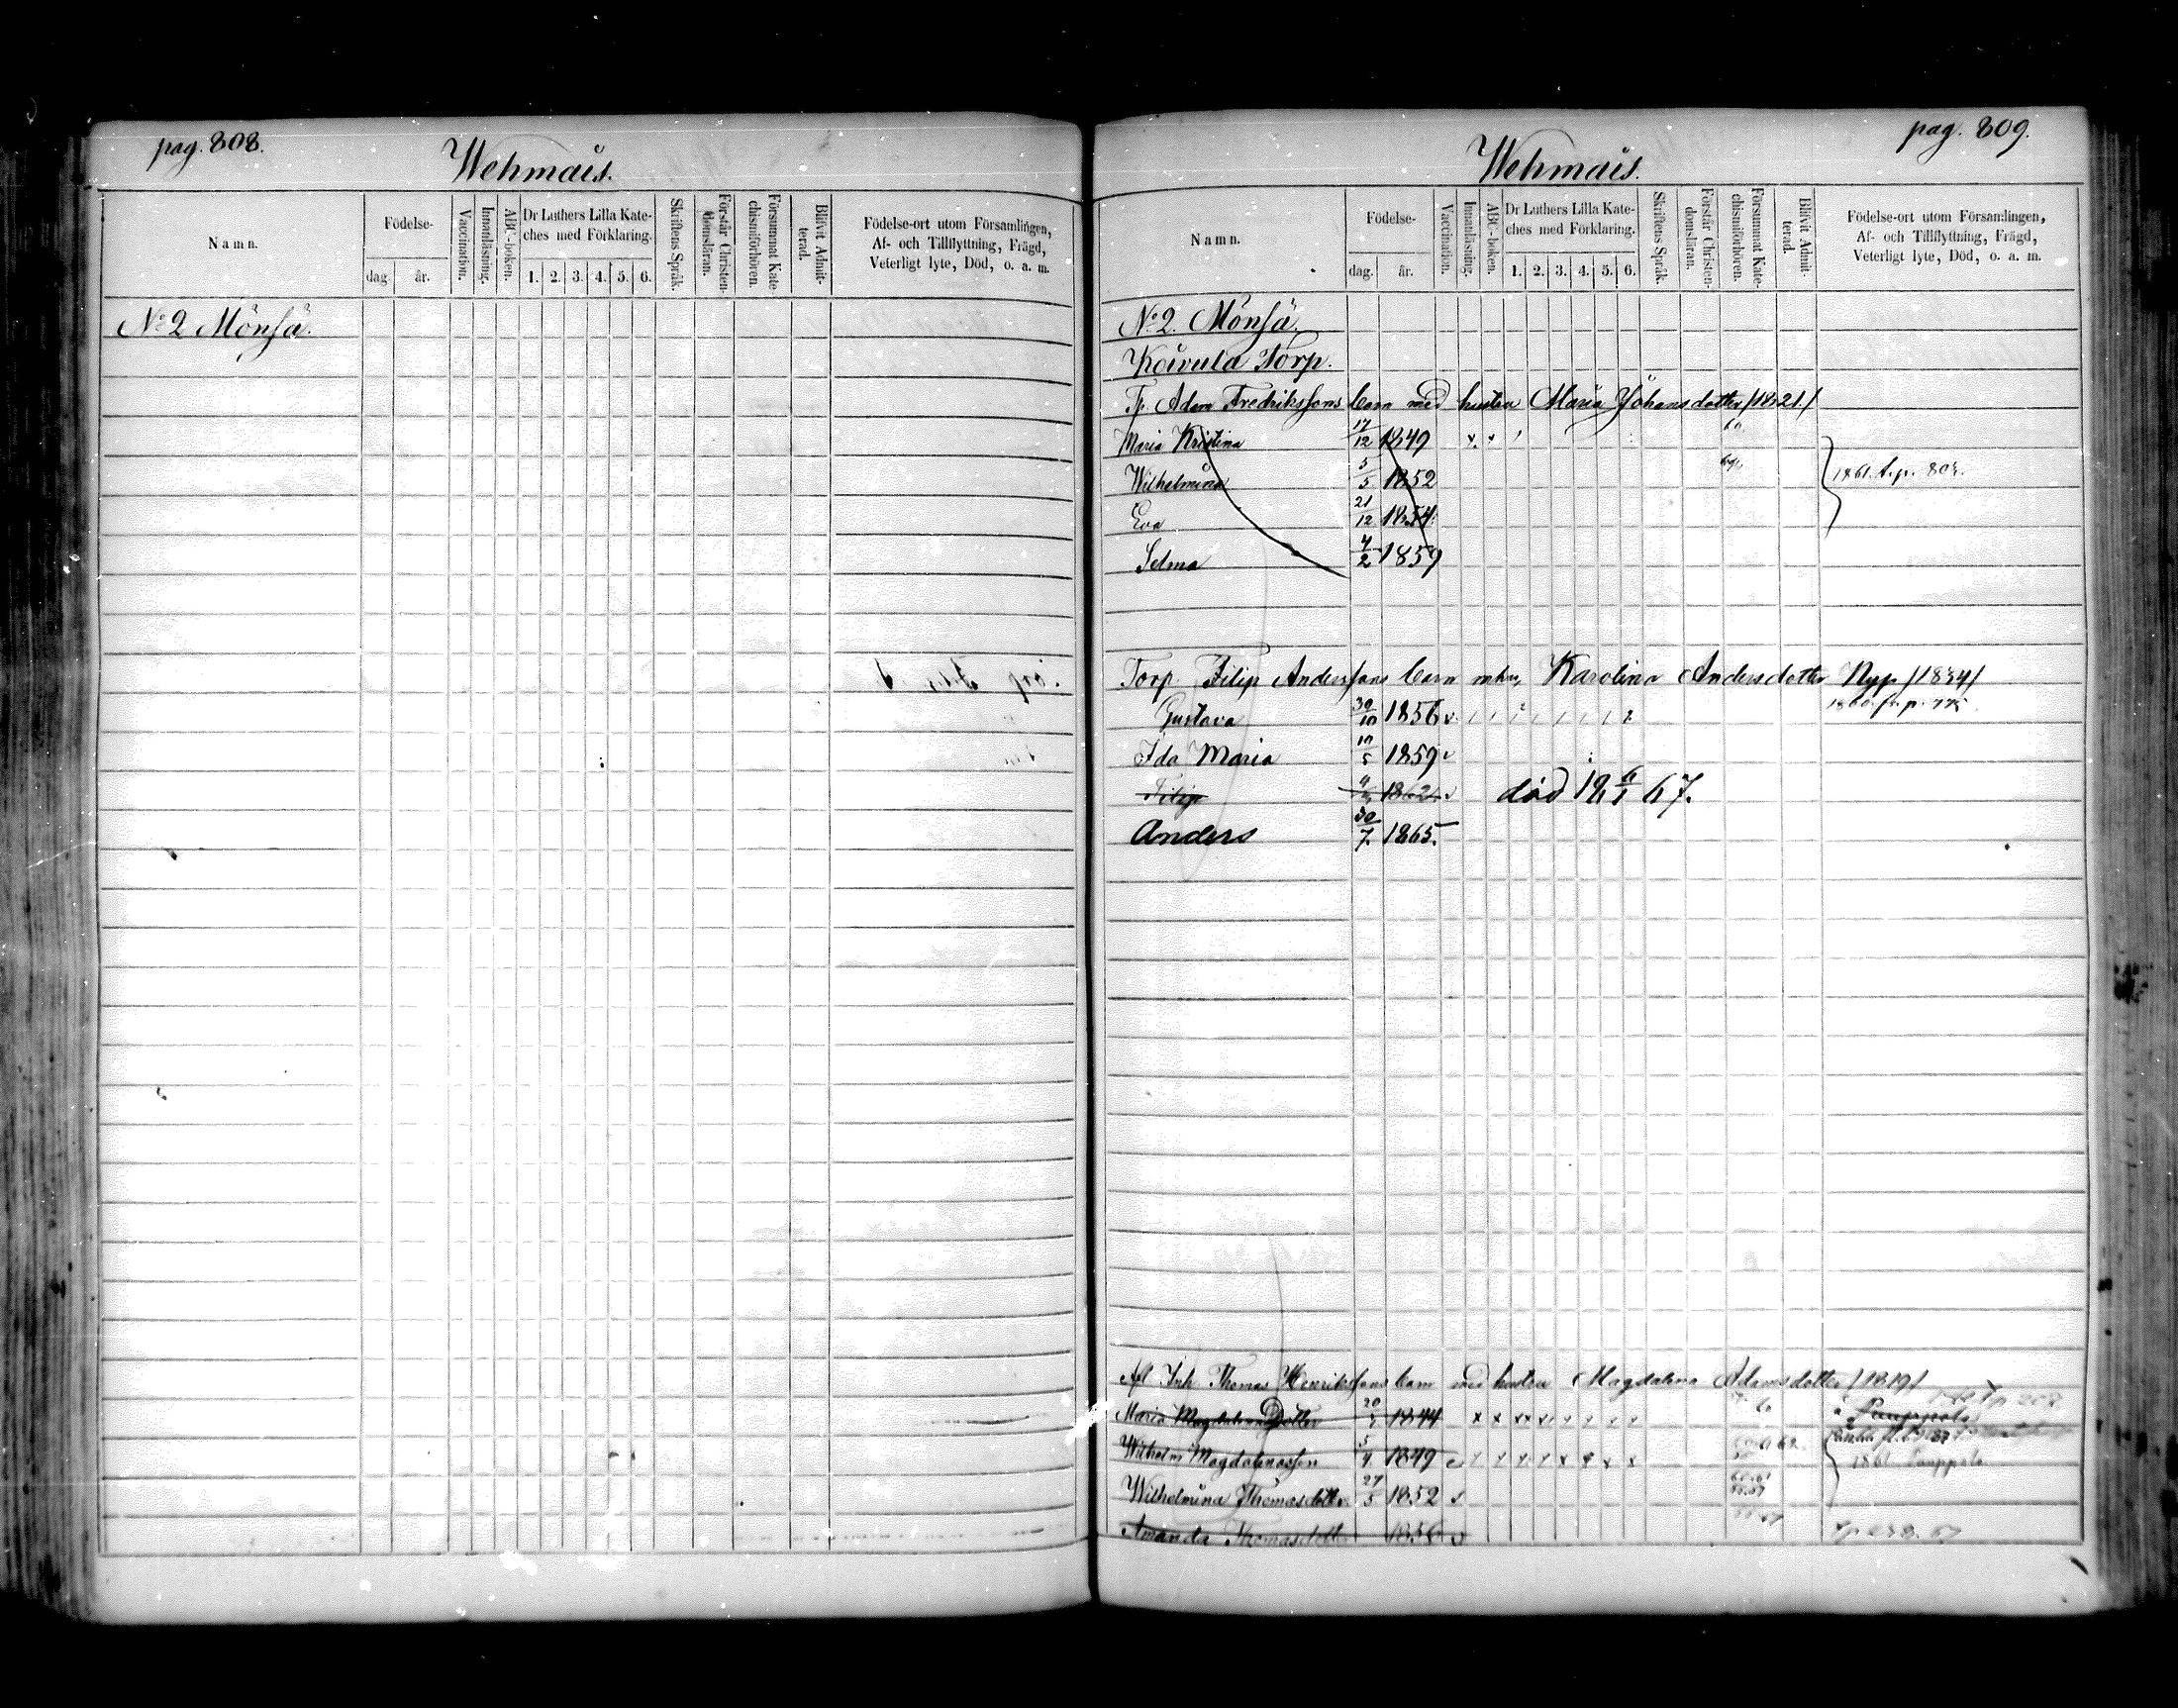 pag. 808.
Wehmais.
Namn.
Födelse-
dag.
år.
Vaccination.
Innanläsning.
ABC-boken.
Dr Luthers Lilla Kate-
ches med Förklaring.
1. 2. 3. 4. 5. 6.
Skriftens Språk.
Förstår Christen-
domsläran.
Försummat Kate-
chismiförhören.
Blifvit Admit-
terad.
Födelse-ort utom Församlingen,
Af- och Tillflyttning, Frägd,
Veterligt lyte, Död, o. a. m.
No 2 Mönsä.
pag. 809.
Wehmais.
Namn.
Födelse-
dag.
år.
Vaccination.
Innanläsning.
ABC-boken.
Dr Luthers Lilla Kate-
ches med Förklaring.
1. 2. 3. 4. 5. 6.
Skriftens Språk.
Förstår Christen-
domsläran.
Försummat Kate-
chismiförhören.
Blifvit Admit-
terad.
Födelse-ort utom Församlingen,
Af- och Tillflyttning, Frägd,
Veterligt lyte, Död, o. a. m.
No 2. Mönsä.
Koivula Torp.
Adam Fredrikssons barn med hustru Maria Johansdotter /1821/
Maria Kristina 17/12 1849
Wilhelmina 5/5 1852 1861
Eva 21/12 1854.
Selma 4/2 1859
Torp. Filip Anderssons barn Karolina Andersdotter Nyp /1834/
Gustava 30/10 1856
Ida Maria 1859
Filip 1862 död 18 6/1 67.
Anders 30/7. 1865.
Inh Thomas Henrikssons barn med hustru Magdalena Adamsdotter /1819/
Maria Magdalenadotter 20 1844
Wilhelm Magdalenasson 5/4 1849 1861
Wilhelmina Thomasdotter 27/5 1852
Amanda Thomasdott 1856